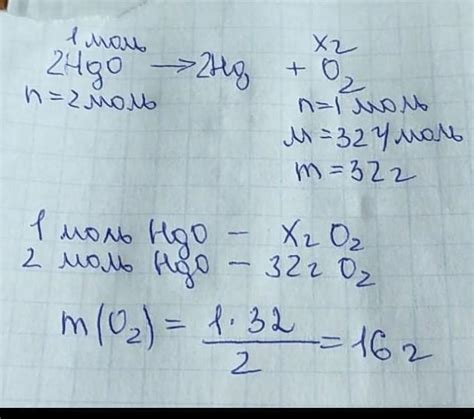 1 моль х г
2HgO → 2Hg + O₂
n = 2 моль n = 1 моль
M = 32 г/моль
m = 32 г
1 моль HgO – х г O₂
2 моль HgO – 32 г O₂
m(O₂) = 1·32 / 2 = 16 г